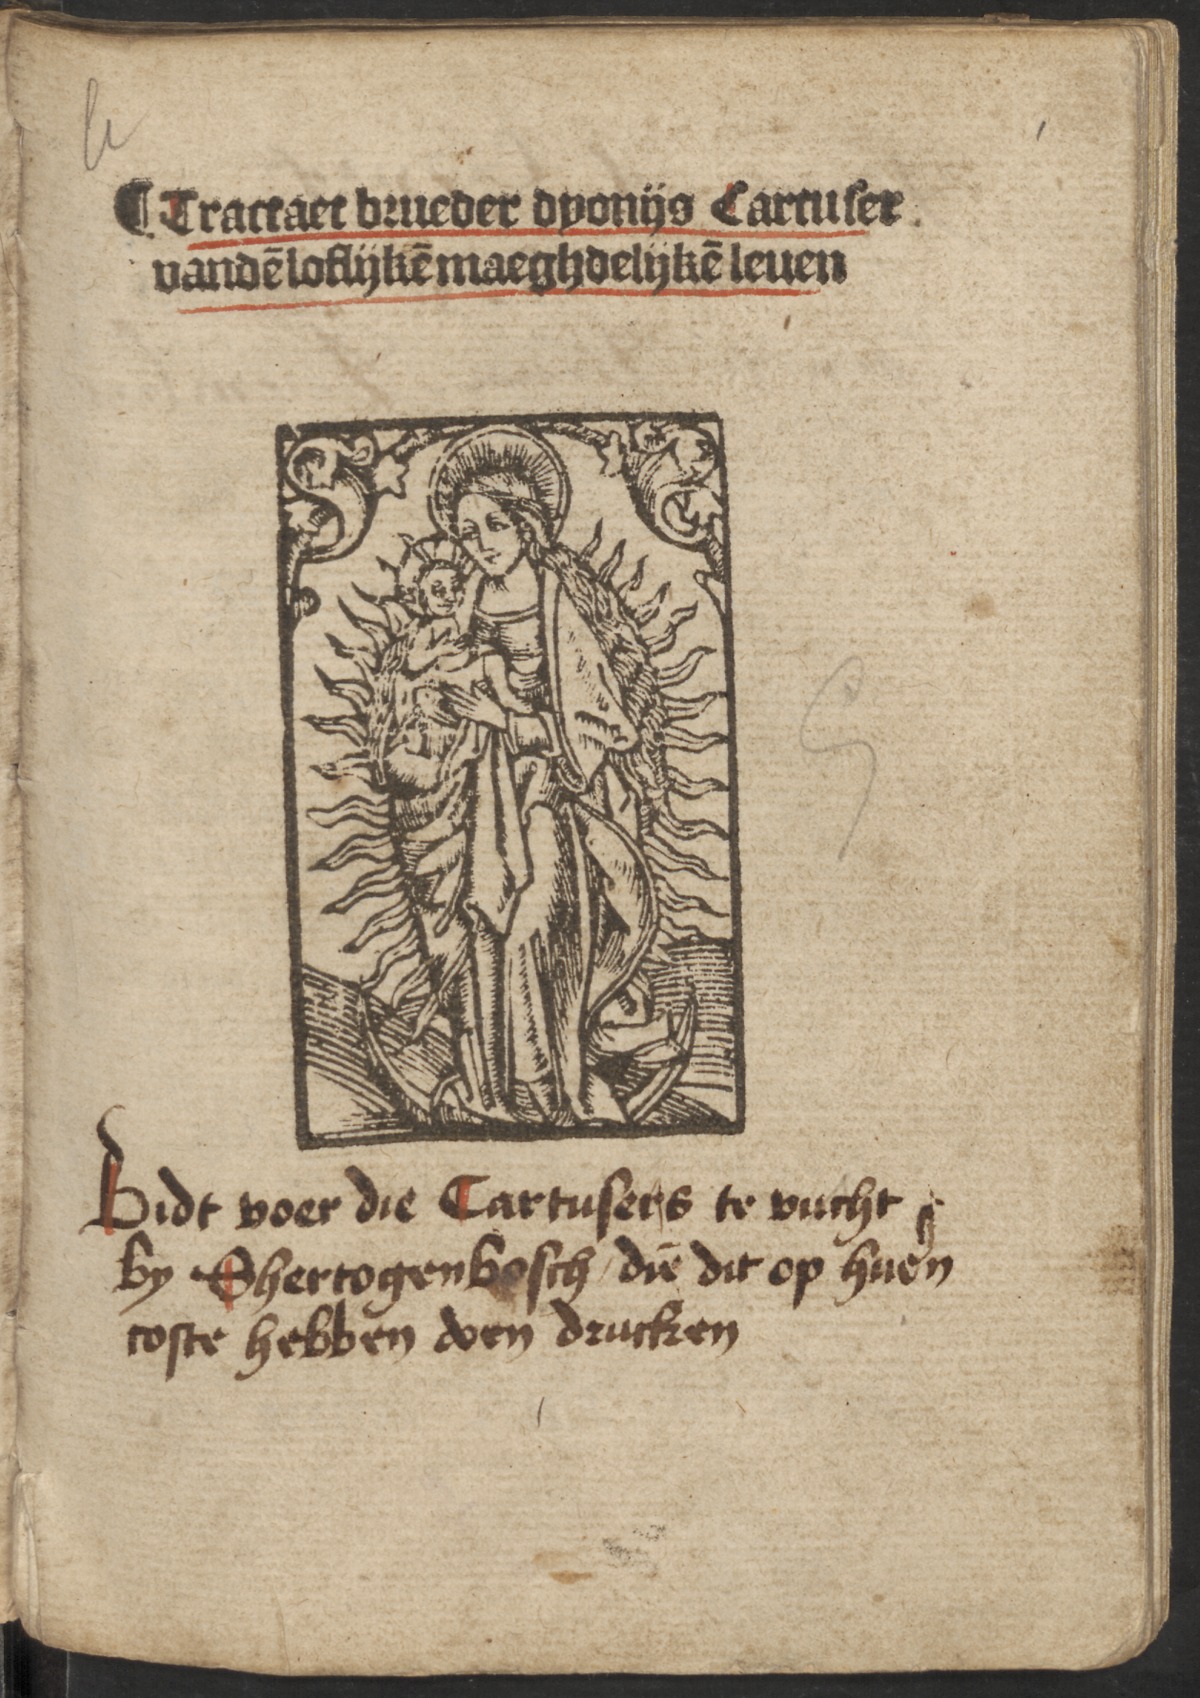 ¶ Tractaet brueder dyonijs Cartuser
vandē loflijkē maeghdelijkē leuen
Bidt voer die Cartusers te vucht
by Shertogenbosch / diē dit op huen
coste hebben doen drucken